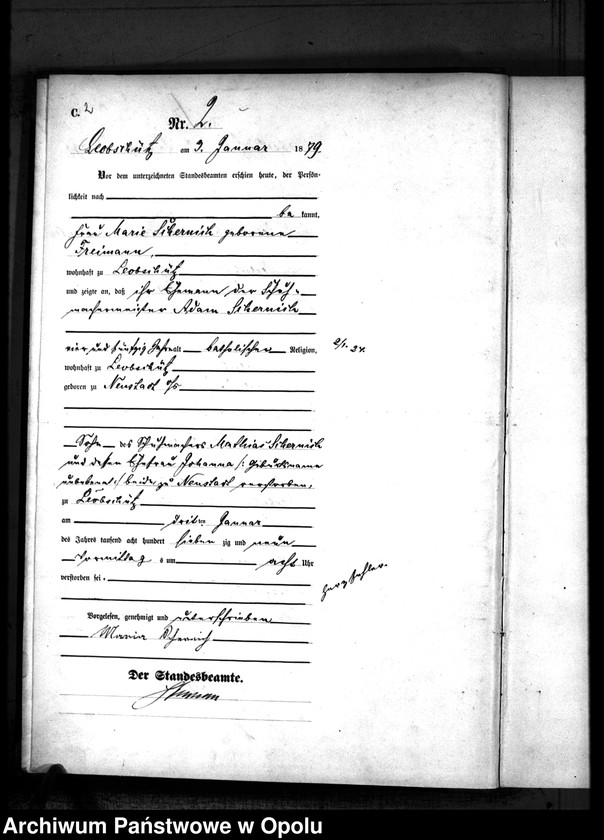 C. 2
Nr. 2.
Leobschütz am 3. Januar 1879.
Vor dem unterzeichneten Standesbeamten erschien heute, der Persön-
lichkeit nach
be kannt,
Frau Marie Schernich geborene
Freimann,
wohnhaft zu Leobschütz
und zeigte an, daß ihr Ehemann der Schuh-
machermeister Adam Schernich
vier und fünfzig Jahr alt katholischer Religion,
wohnhaft zu Leobschütz
geboren zu Neustadt o/s
Sohn des Schuhmachers Mathias Schernich
und dessen Ehefrau Johanna /: Geburtsname
unbekannt :/ beide zu Neustadt verstorben,
zu Leobschütz
am dritten Januar
des Jahres tausend acht hundert sieben zig und neun
Vormittag s um acht Uhr
verstorben sei.
Herzfehler.
Vorgelesen, genehmigt und unterschrieben
Maria Schernich
Der Standesbeamte.
Archiwum Państwowe w Opolu